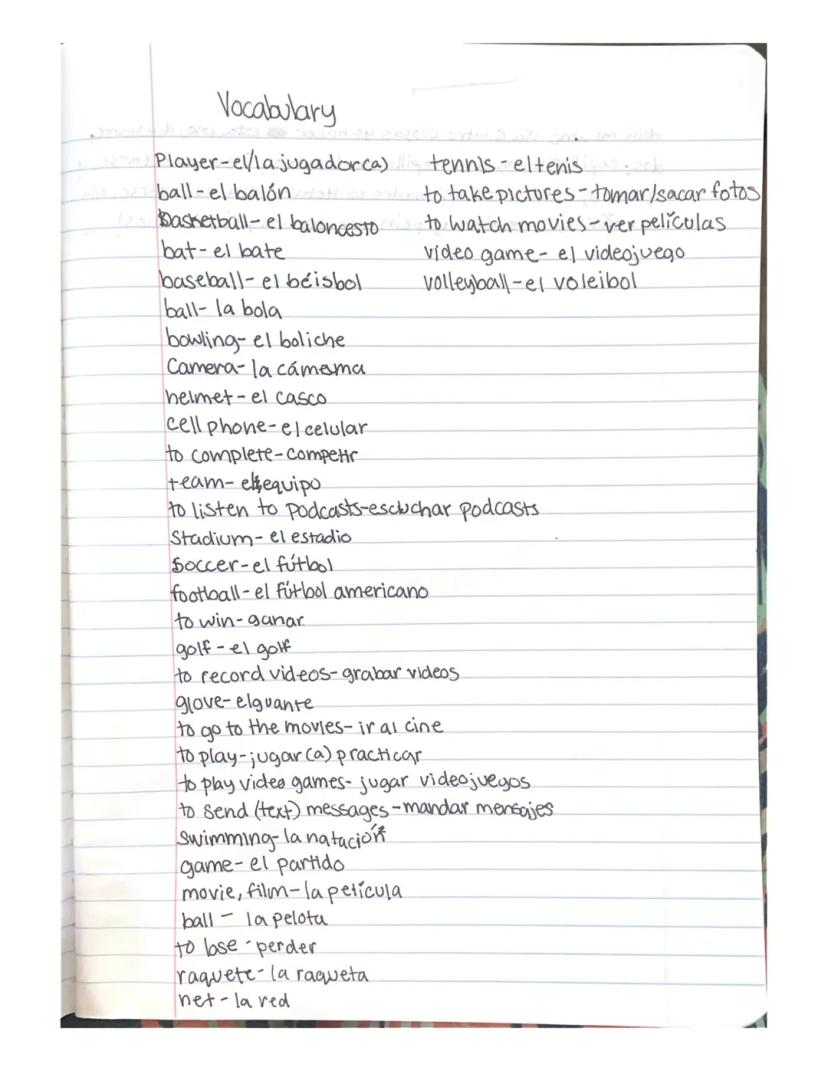 Vocabulary
Player-el/la jugador(a)
ball-el balón
Basketball-el baloncesto
bat-el bate
baseball-el béisbol
ball-la bola
bowling-el boliche
Camera-la cámama
helmet-el casco
cell phone-el celular
to complete-competir
team-el equipo
to listen to podcasts-escuchar podcasts
Stadium-el estadio
Soccer-el fútbol
football-el fútbol americano
to win-ganar
golf-el golf
to record videos-grabar videos
glove-el guante
to go to the movies-ir al cine
to play-jugar (a) practicar
to play video games-jugar videojuegos
to send (text) messages-mandar mensajes
Swimming-la natación
game-el partido
movie, film-la película
ball - la pelota
to lose-perder
raquete-la raqueta
net-la red
tennis-el tenis
to take pictures-tomar/sacar fotos
to watch movies-ver películas
video game-el videojuego
volleyball-el voleibol